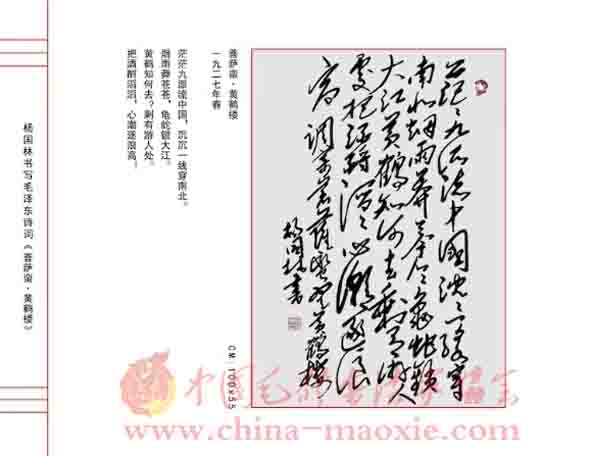 茫〻九派流中國沈〻一线穿
南北烟雨莽苍〻龟蛇锁
大江黄鹤知何去剩有游人
處把酒酹滔〻心潮逐浪
高 调寄菩萨蛮登黄鹤楼
杨国林书
CM:100x55
菩萨蛮·黄鹤楼
一九二七年春
茫茫九派流中国,沉沉一线穿南北。
烟雨莽苍苍,龟蛇锁大江。
黄鹤知何去?剩有游人处。
把酒酹滔滔,心潮逐浪高!
杨国林书写毛泽东诗词《菩萨蛮·黄鹤楼》
中国毛
www.china-maoxie.com